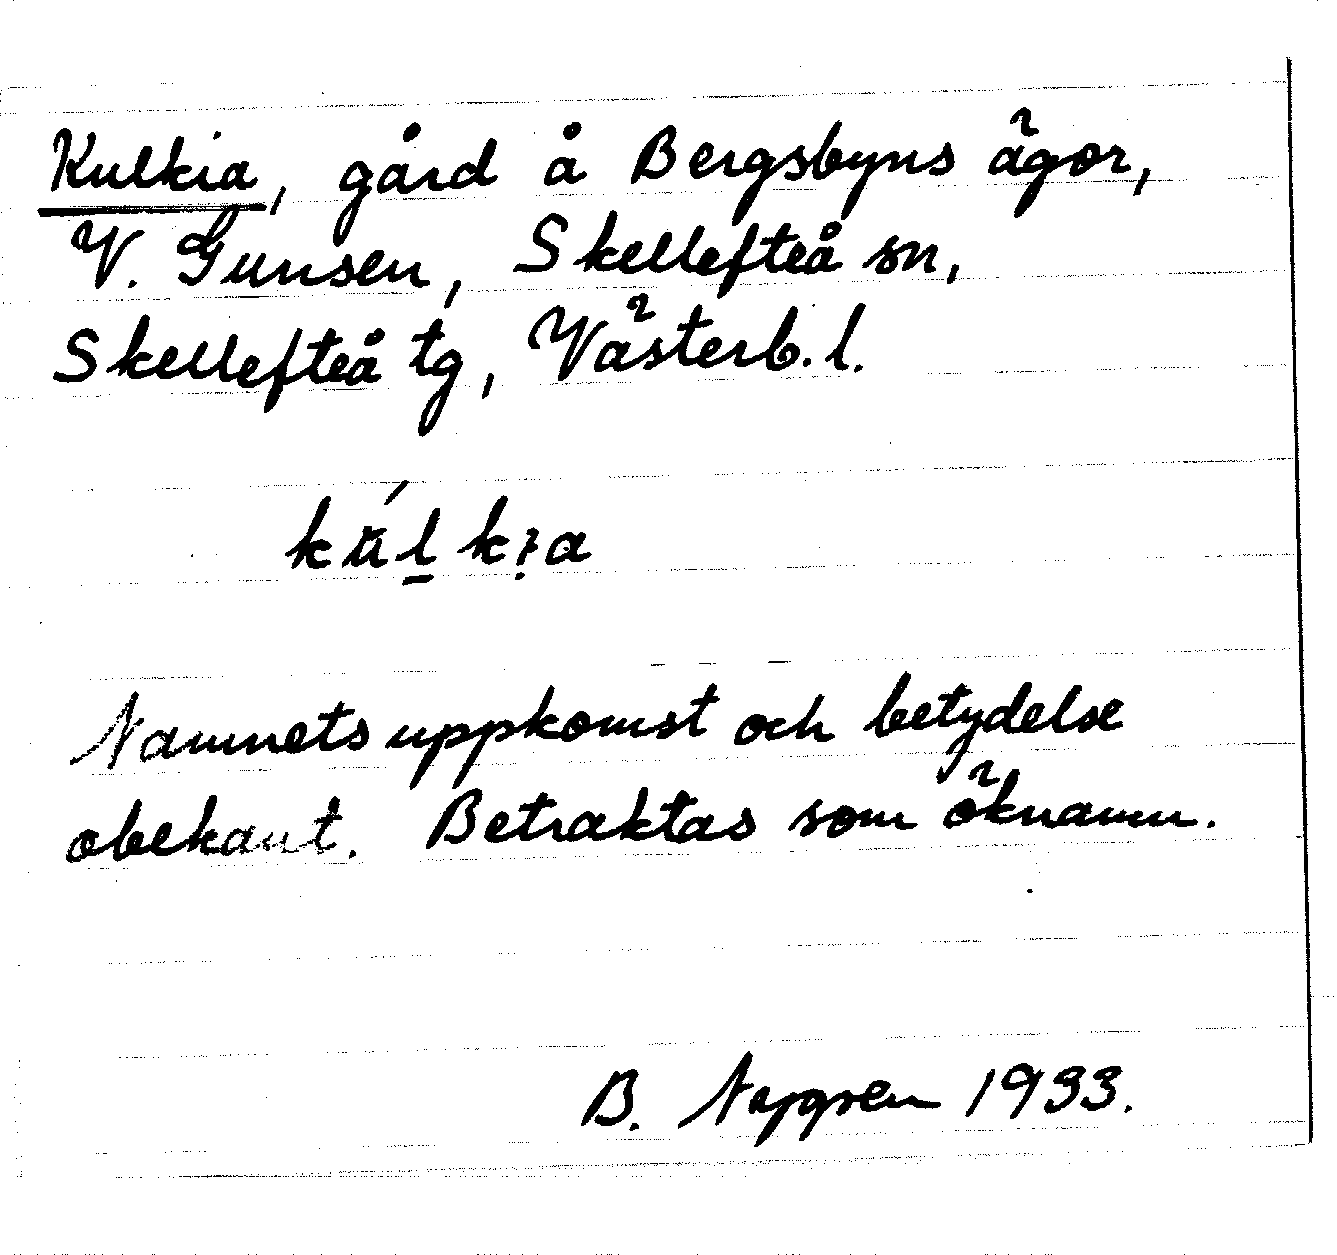 Kulkia, gård å Bergsbyns ägor,
V. Gunsen, Skellefteå sn,
Skellefteå tg, Västerb. l.
Namnets uppkomst och betydelse
obekant. Betraktas som öknamn.
B. 1933.